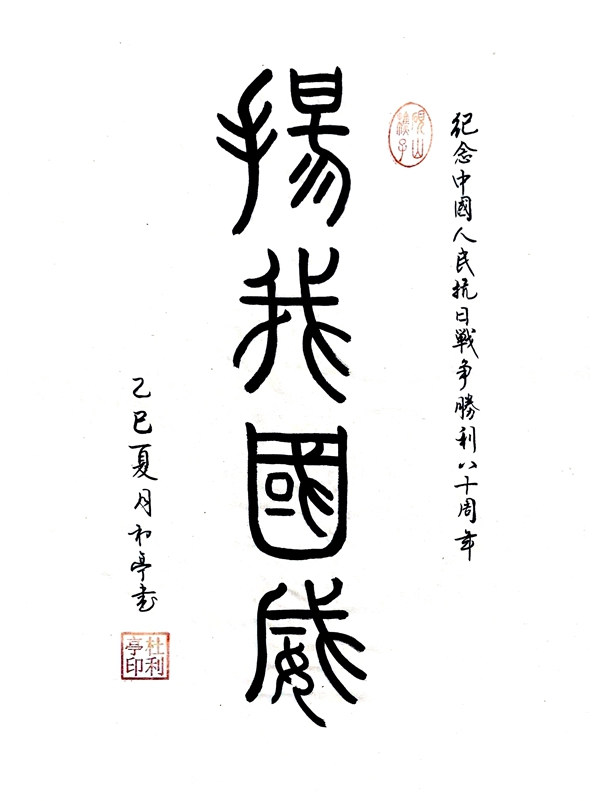 紀念中國人民抗日戰争勝利八十周年
揚我國威
乙巳夏月利亭書
杜利
亭印